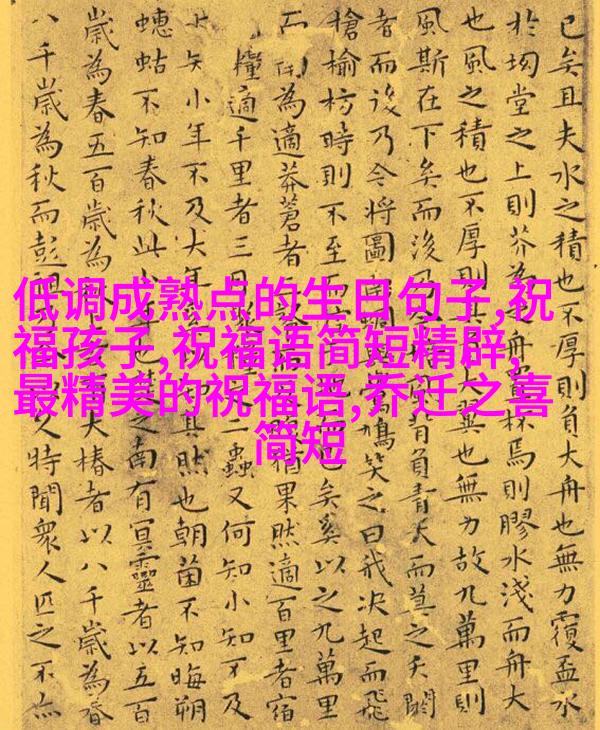 已矣且夫水之積也不厚則負大舟也無力覆盃水
於坳堂之上則芥為之舟置杯焉則膠水淺而舟大
也風之積也不厚則其負大翼也無力故九萬里則
風斯在下矣而後乃風背負青天而莫之夭閼
者而後乃今將圖南蜩鳩笑之曰我決起而飛
槍榆枋時則不至而也矣奚以之九萬里
而為適莽蒼者三猶果然適百里者宿
糧適千里者三月之二蟲又何知小知不及
大知小年不及大年知其然也朝菌不知晦朔
蟪蛄不知春秋此小年之南有冥靈者以五百
歲為春五百歲為大椿者以八千歲為春
八千歲為秋而彭祖久特聞衆人匹之不亦
低调成熟点的生日句子,祝
福孩子,祝福语简短精辟,
最精美的祝福语,乔迁之喜
简短